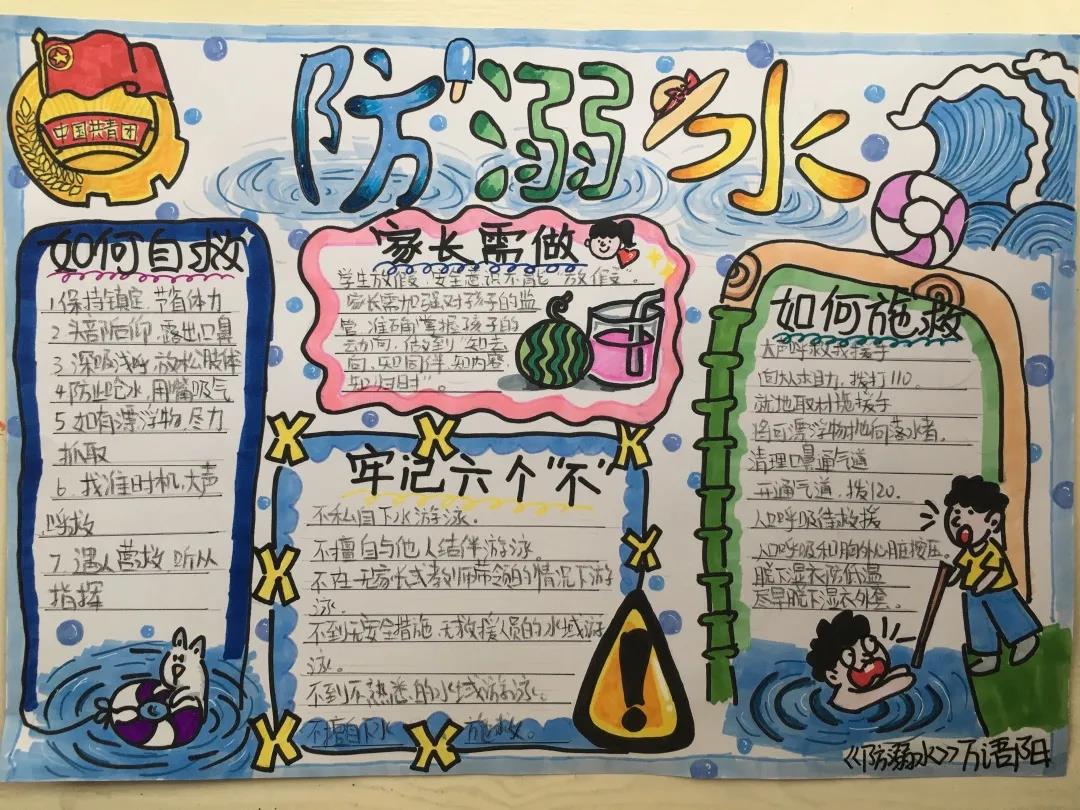 中国共青团
防溺水
如何自救
1.保持镇定,节省体力
2.头部后仰,露出口鼻
3.深吸浅呼,放松肢体
4.防止呛水,用嘴吸气
5.如有漂浮物,尽力
抓取
6.找准时机,大声
呼救
7.遇人营救,听从
指挥
家长需做
学生放假,安全意识不能“放假”。
家长需加强对孩子的监
管,准确掌握孩子的
动向,做到“知去
向,知同伴,知内容
知归时”。
牢记六个“不”
不私自下水游泳。
不擅自与他人结伴游泳。
不在无家长或教师带领的情况下游
泳。
不到无安全措施,无救援人员的水域游
泳。
不到不熟悉的水域游泳。
不擅自下水 施救。
如何施救
大声呼救找援手
向大人求助,拨打110.
就地取材施援手
将可漂浮物抛向落水者.
清理口鼻通气道
开通气道,拨120.
人口呼吸待救援
人口呼吸和胸外心脏按压.
脱下湿衣防低温
尽早脱下湿衣外套.
《防溺水》万语阳